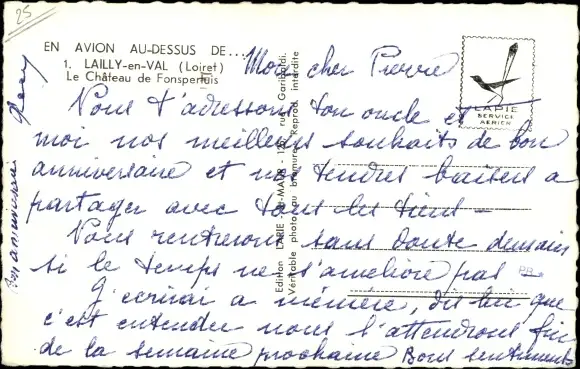 25
EN AVION AU-DESSUS DE...
1. LAILLY-en-VAL (Loiret)
Le Château de Fonspertuis
LAPIE
SERVICE
AERIEN
Edition LAPIE - St-MAUR - rue Garibaldi.
Véritable photo au bromure - Reprod. interdite
Mon cher Pierre
Nous t'adressons ton oncle et
moi nos meilleurs souhaits de bon
anniversaire et nos tendres baisers à
partager avec tous les tiens -
Nous rentrerons sans doute demain
si le temps ne s'améliore pas
J'écrirai à mémère, dis lui que
c'est entendu nous l'attendrons fin
de la semaine prochaine Bons sentiments
Bon anniversaire